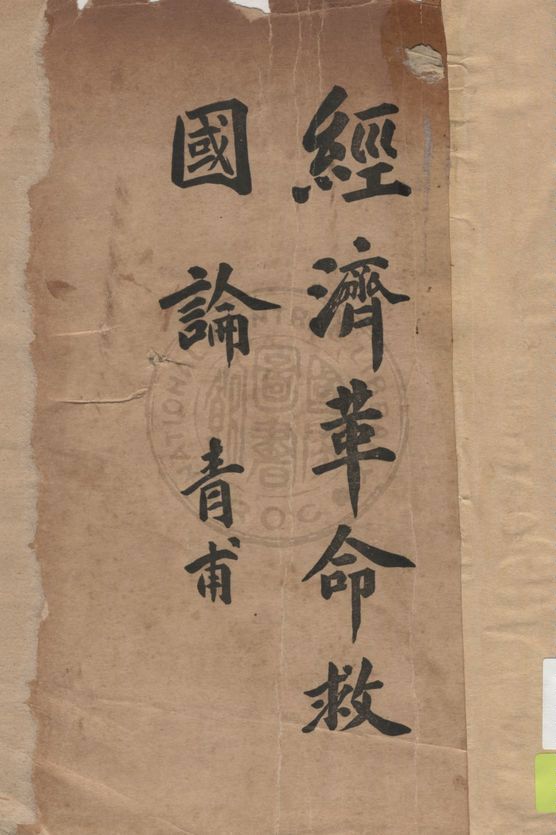 經濟革命救
國論 青甫